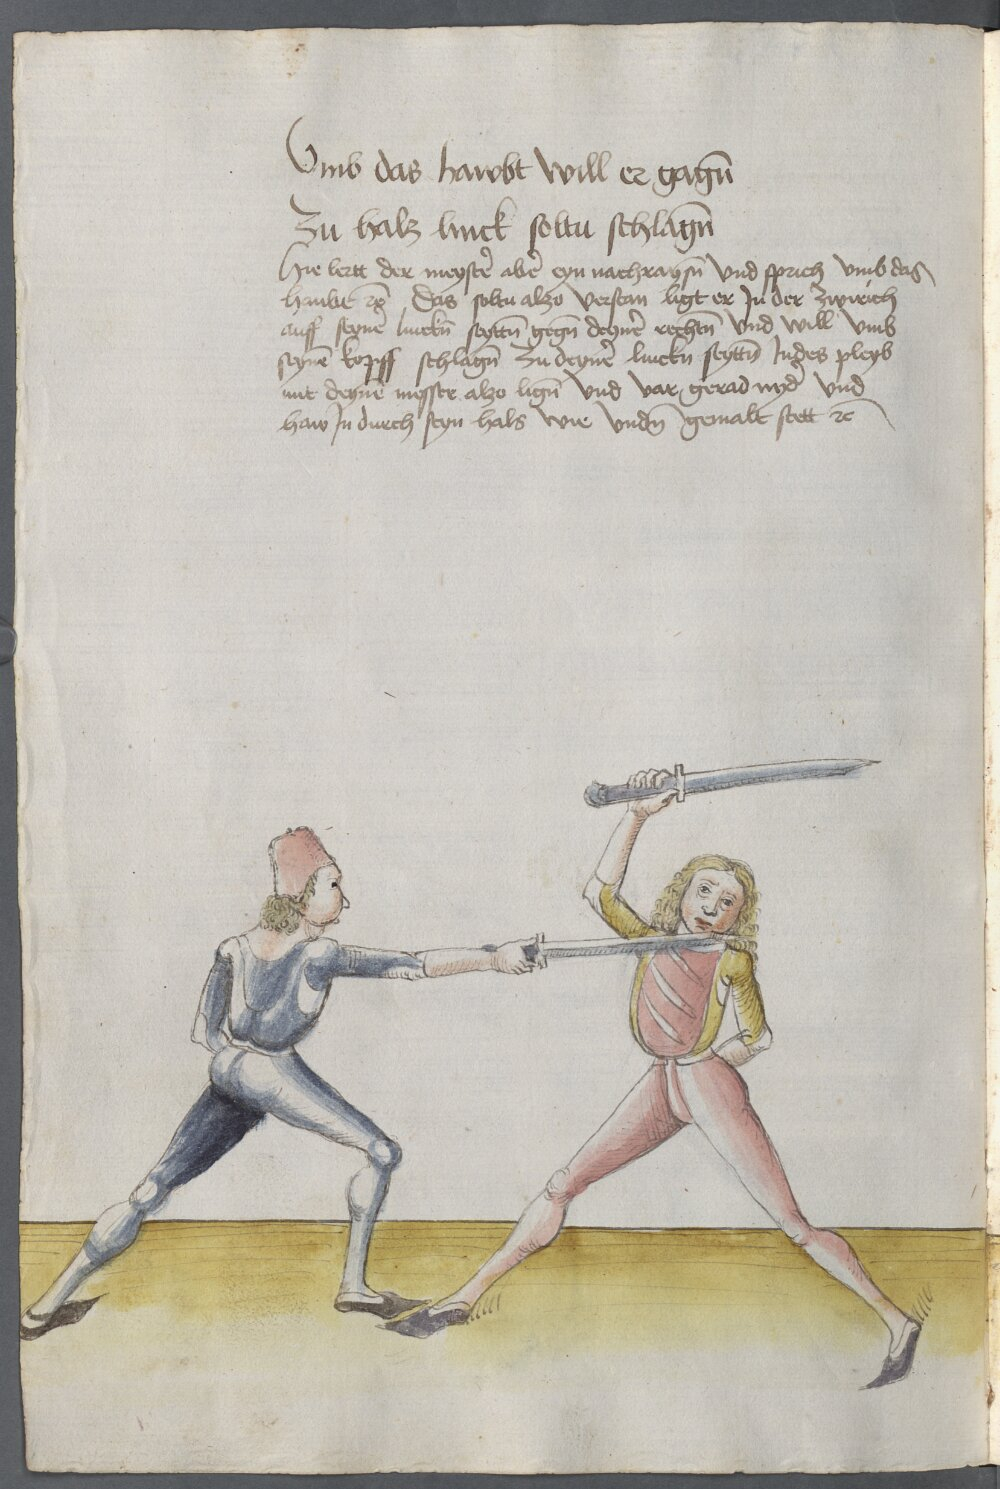 Vmb das hawbt will er gagñ
Zu halz linck soltu schlagñ
Hie lertt der meystẽ abẽ eyn nachraysñ Vnd sprich Vmb das
hawbt ꝛc̃ Das soltu also Verstan ligt er Jn der zwirich
auff seynẽ linckñ seyttñ gegñ deynẽ rechtñ Vnd will Vmb
seynẽ kopff schlagñ Zu deynẽ linckñ seyttñ Jndes pleyb
mit deynẽ messer alzo ligñ Vnd Var gerad nyd̃ Vnd
haw Jn durch seyn hals wie Vndñ gemalt stett ꝛc̃